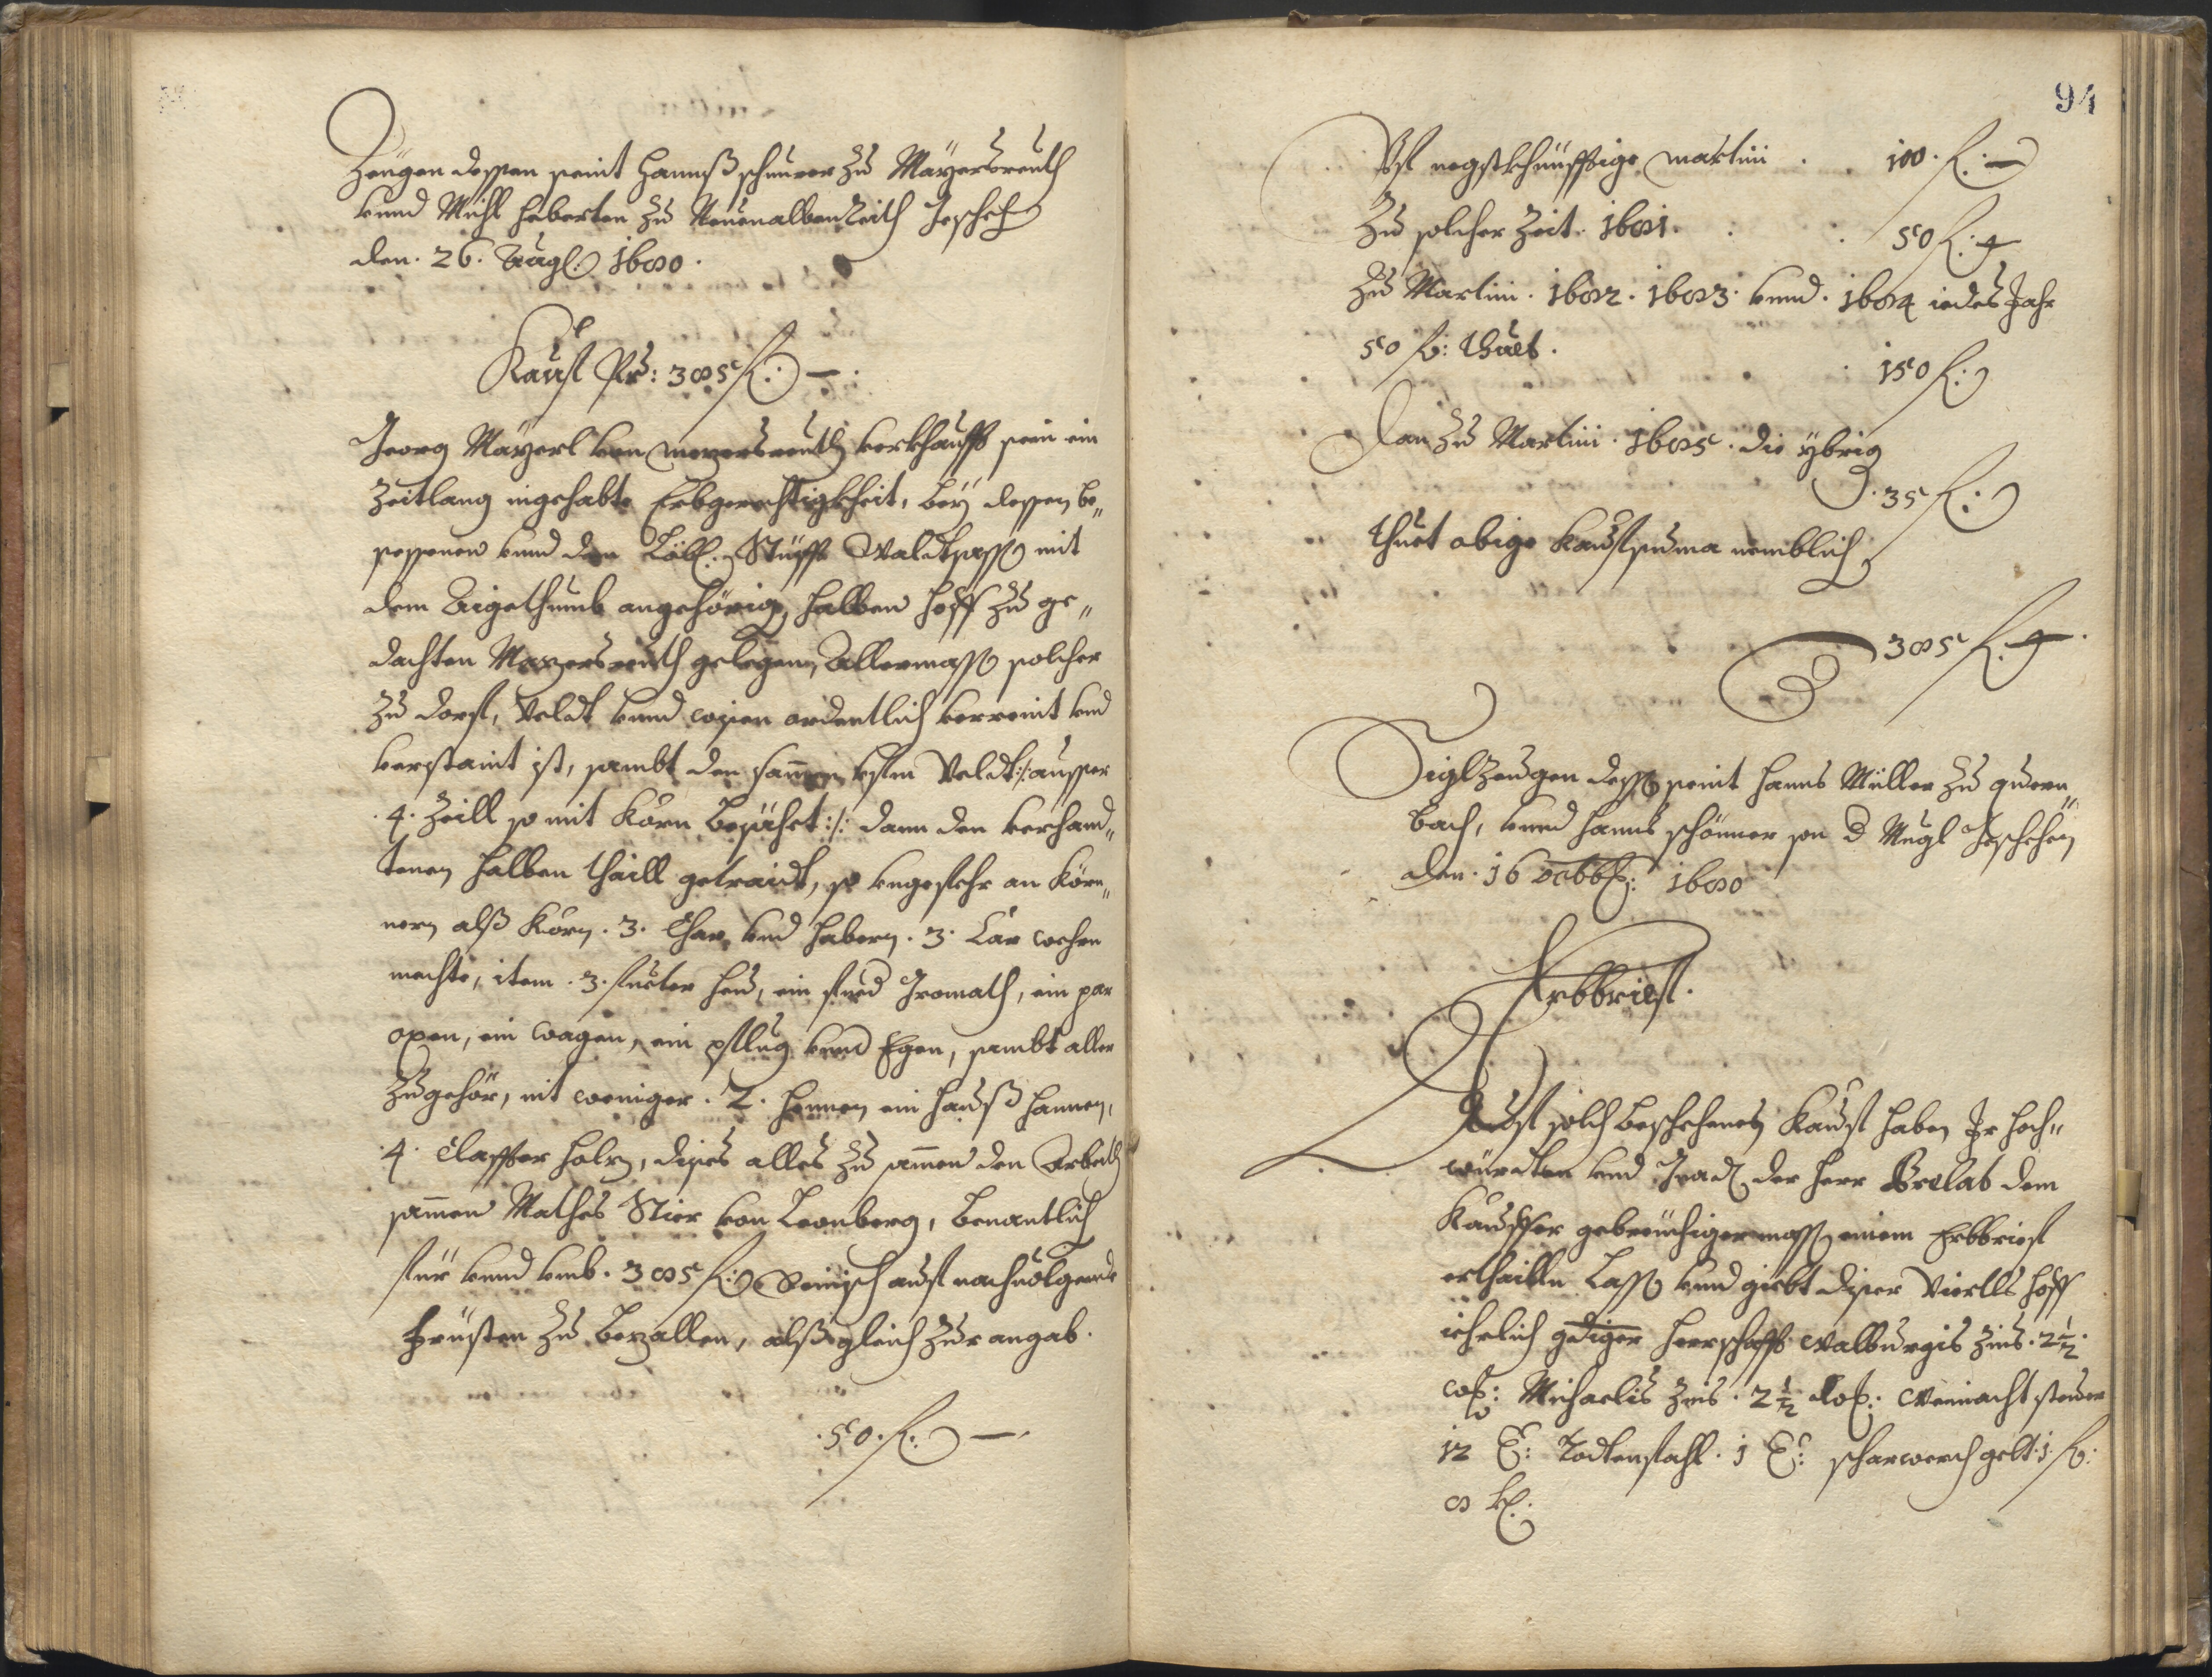 Zeugen dessen seint Hannß schnurer zu Mayersreuth
unnd Michl Haberkorn zu Neuenalbenreith Geschehen
den. 26. Augl: 1680.
Kauf Pr: 385 fl: —.
Georg Mayerl von mayersreuth verkhaufft sein ein
Zeitlang ingehabte Erbgerechtigkheit, bey dessen be„
sessenen unnd dem Löbl: Stüfft Waldtsassen mit
dem Aigethumb angehörig, halben Hoff zu ge„
dachten Mayersreuth gelegen, Allermassen solcher
zu dorf, Veldt unnd wisen ordentlich verreint und
verstaint ist, sambt den samen ufm Veldt :/: ausser
4. Zeill so mit Korn besähet :/: dann den verhand„
tenen halben thaill getraidt, so ungefehr an Kör„
nern alß Korn. 3. Char, und habern. 3. Car
machte, item. 3. fueter heu, ein fued Gromath, ein par
oxen, ein wagen, ein pflug unnd Egen, sambt aller
Zugehör, nit weniger. 2. hennen ein Hauß hannen,
4. Claffter holz, dises alles zu samen den Arbeith
samen Mathes Stier von Leonberg, benantlich
für unnd umb. 385 fl: Reinisch auf nachuolgende
früsten zu bezallen, alß gleich zur angab.
. 50. fl: —.
94
Uf negstkhünfftige martini . 100. fl: —
Zu solcher Zeit. 1681. . 50 fl: —
Zu Martini. 1682. 1683. unnd. 1684 iedes Jahr
50 fl: thuet. . 150 fl:
Dan zu Martini. 1685. die ybrig
. 35 fl:
thuet obige Kaufsuma nemblich
385 fl: —.
Siglzeugen dessen seint Hanns Müller zu quern„
bach, unnd Hanns schönner son d Mugl Geschehen
den. 16 octobb: 1680
Erbbrief.
Auf solch beschehenen Kauf haben Ir Hoch„
würdten und Gnad. der Herr Prelat dem
Kauffer gebreuchigermassen einem Erbbrief
erthailln lassen unnd giebt diser Viertls Hoff
iehrlich gdiger Herrschafft Walburgis Zins. 2 1/2.
Michaelis Zins. 2 1/2 Weinacht steuer
12 Todtenfahl. 1 scharwerch gelt. 1. fl:
8 kr: